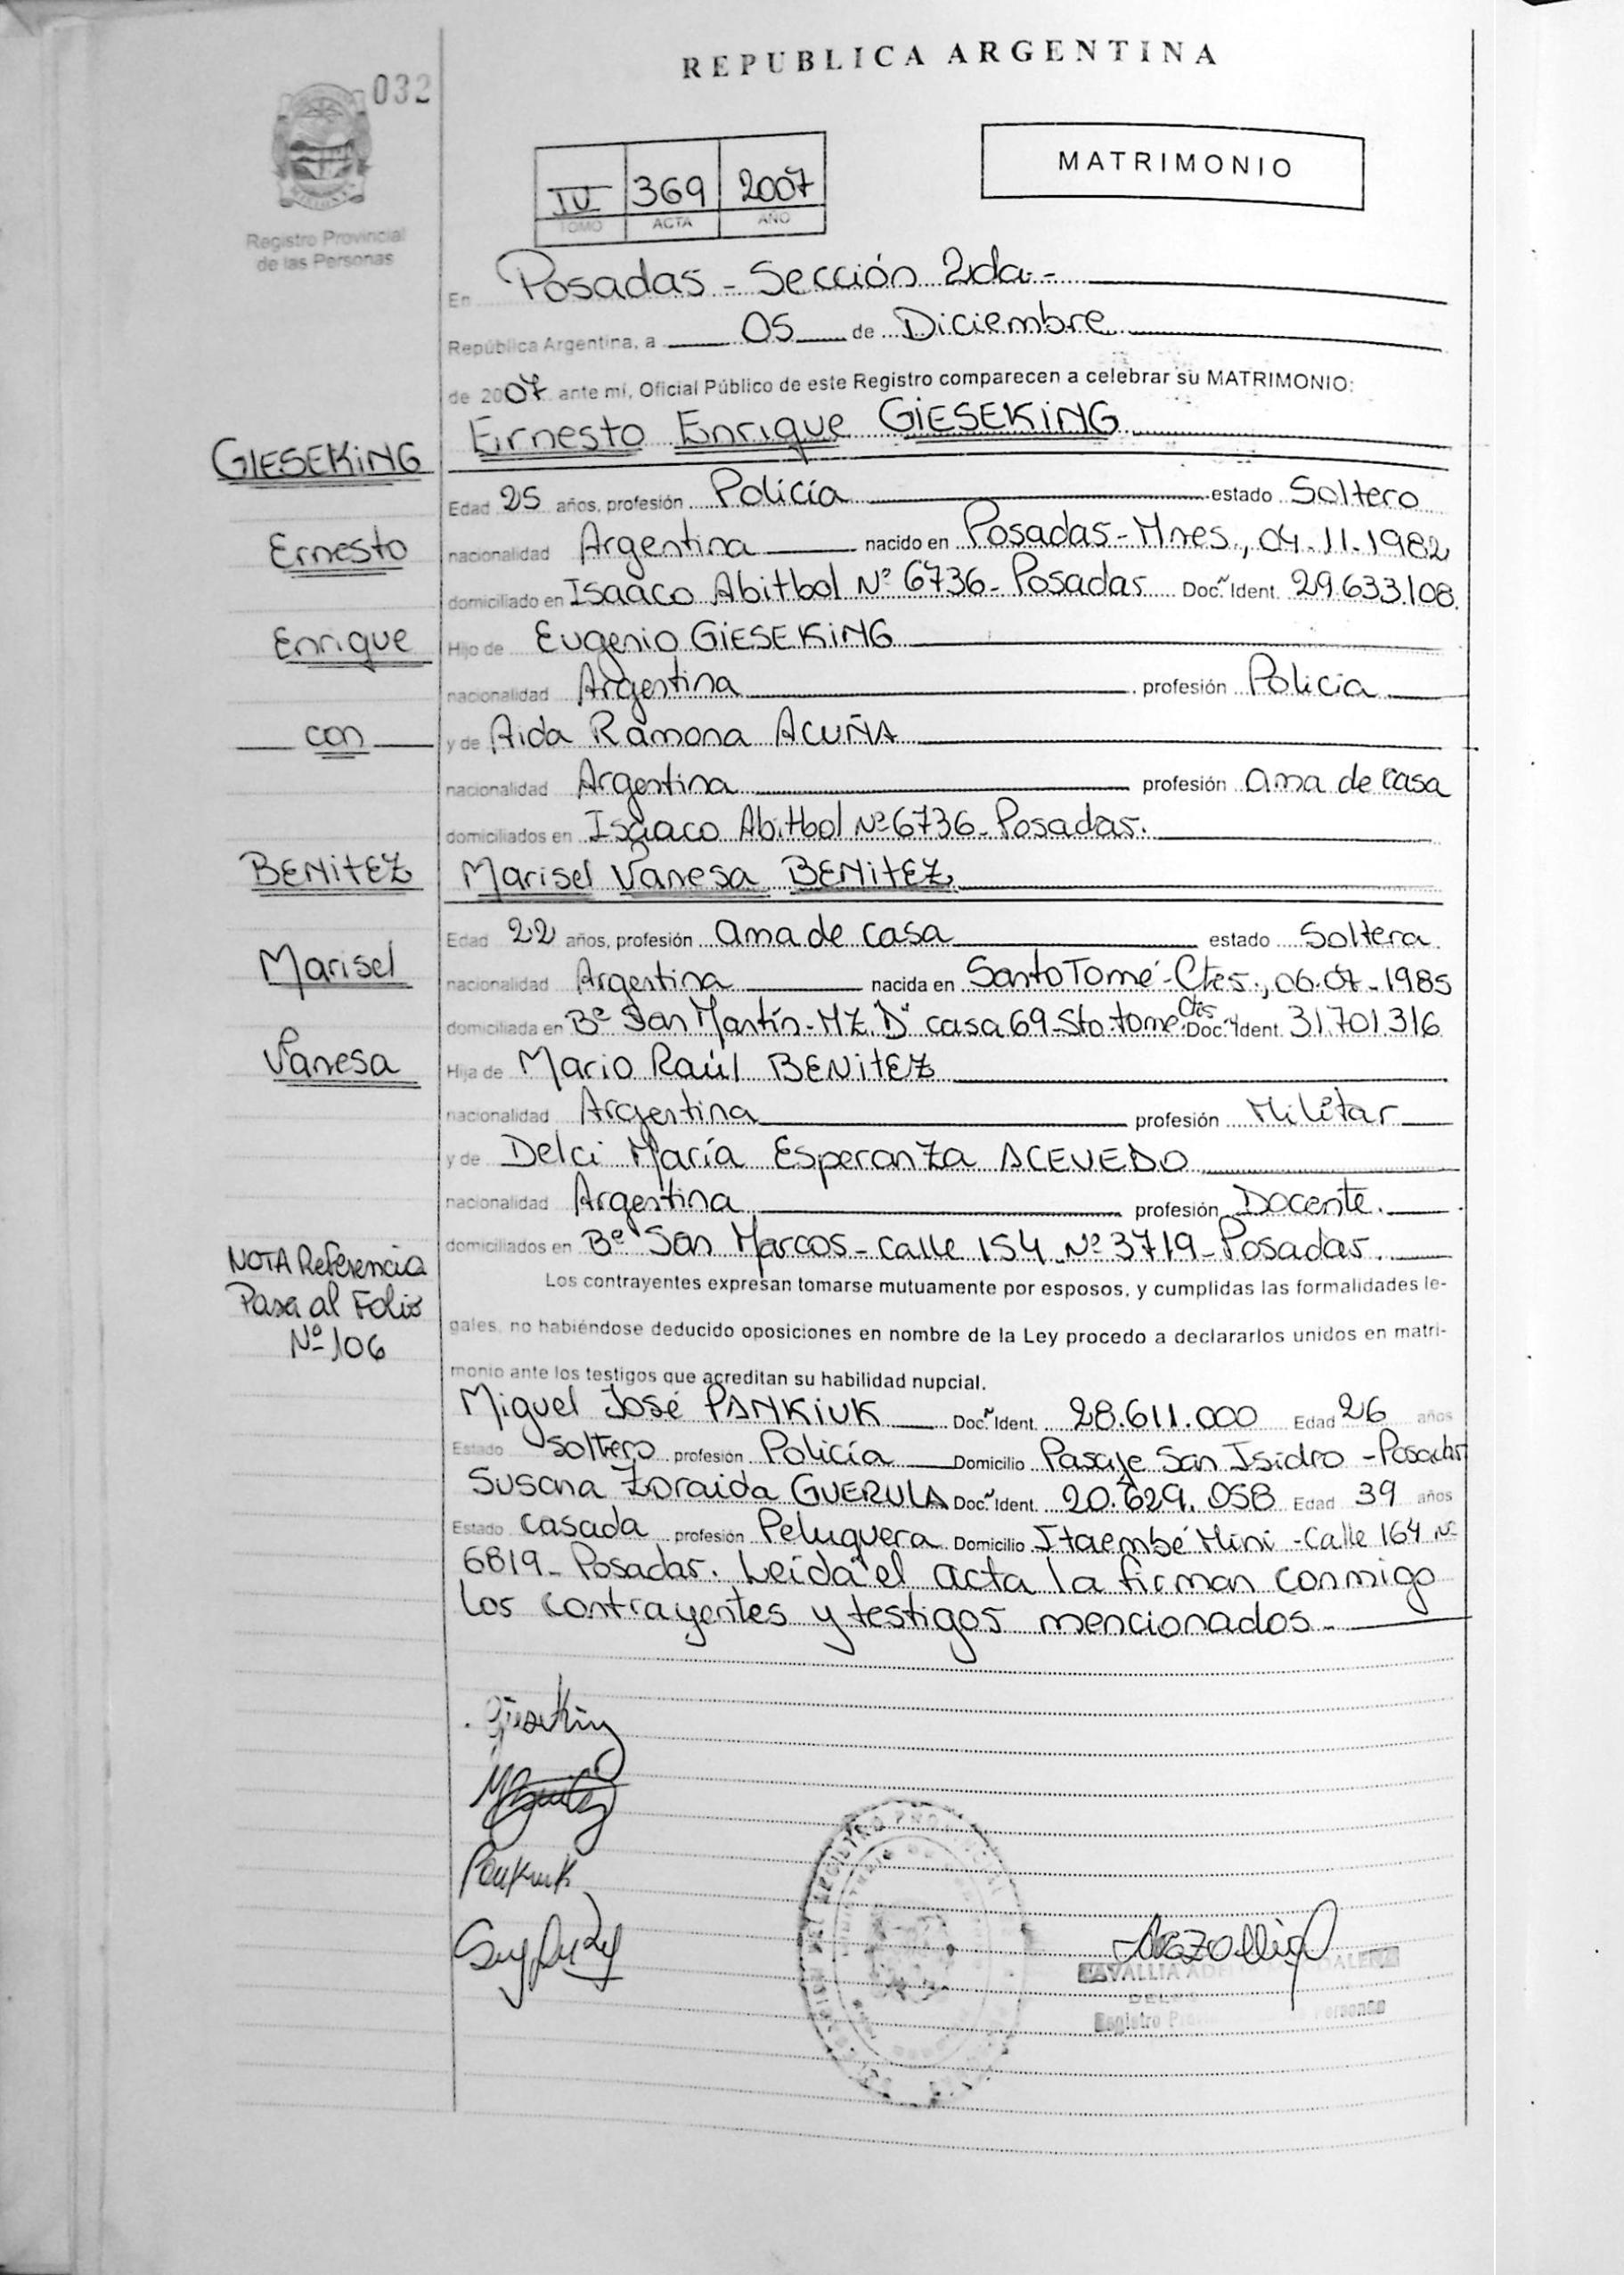 REPUBLICA ARGENTINA
032
MATRIMONIO
IV 369 2007
TOMO ACTA AÑO
Registro Provincial
de las Personas
En Posadas - Sección 2da.-
República Argentina, a 05 de Diciembre
de 2007 ante mí, Oficial Público de este Registro comparecen a celebrar su MATRIMONIO:
Ernesto Enrique GIESEKING
GIESEKING
Edad 25 años, profesión Policía estado Soltero
Ernesto
nacionalidad Argentina nacido en Posadas-Mnes., 04.11.1982
domiciliado en Isaaco Abitbol Nº 6736- Posadas Doc. Ident. 29.633.108.
Enrique
Hijo de Eugenio GIESEKING
nacionalidad Argentina profesión Policía
con
y de Aida Ramona ACUÑA
nacionalidad Argentina profesión ama de casa
domiciliados en Isaaco Abitbol Nº 6736- Posadas.
BENITEZ
Marisel Vanesa BENITEZ
Edad 22 años, profesión ama de casa estado Soltera
Marisel
nacionalidad Argentina nacida en Santo Tomé-Ctes., 06.07-1985
domiciliada en Bº San Martín-MZ."D" casa 69-Sto.tomé Ctes Doc. Ident. 31.701.316
Vanesa
Hija de Mario Raúl BENITEZ
nacionalidad Argentina profesión Militar
y de Delci María Esperanza ACEVEDO
nacionalidad Argentina profesión Docente.
domiciliados en Bº San Marcos-calle 154 Nº 3719-Posadas.
NOTA Referencia
Pasa al Folio
Nº 106
Los contrayentes expresan tomarse mutuamente por esposos, y cumplidas las formalidades le-
gales, no habiéndose deducido oposiciones en nombre de la Ley procedo a declararlos unidos en matri-
monio ante los testigos que acreditan su habilidad nupcial.
Miguel José PANKIUK Doc. Ident. 28.611.000 Edad 26 años
Estado Soltero profesión Policía Domicilio Pasaje San Isidro -Posadas
Susana Zoraida GUERULA Doc. Ident. 20.629.058 Edad 39 años
Estado Casada profesión Peluquera Domicilio Itaembé Mini -Calle 164 Nº
6819- Posadas. Leída el acta la firman conmigo
los contrayentes y testigos mencionados.-
Gieseking
MBenitez
Pankiuk
REGISTRO PROVINCIAL
Registro